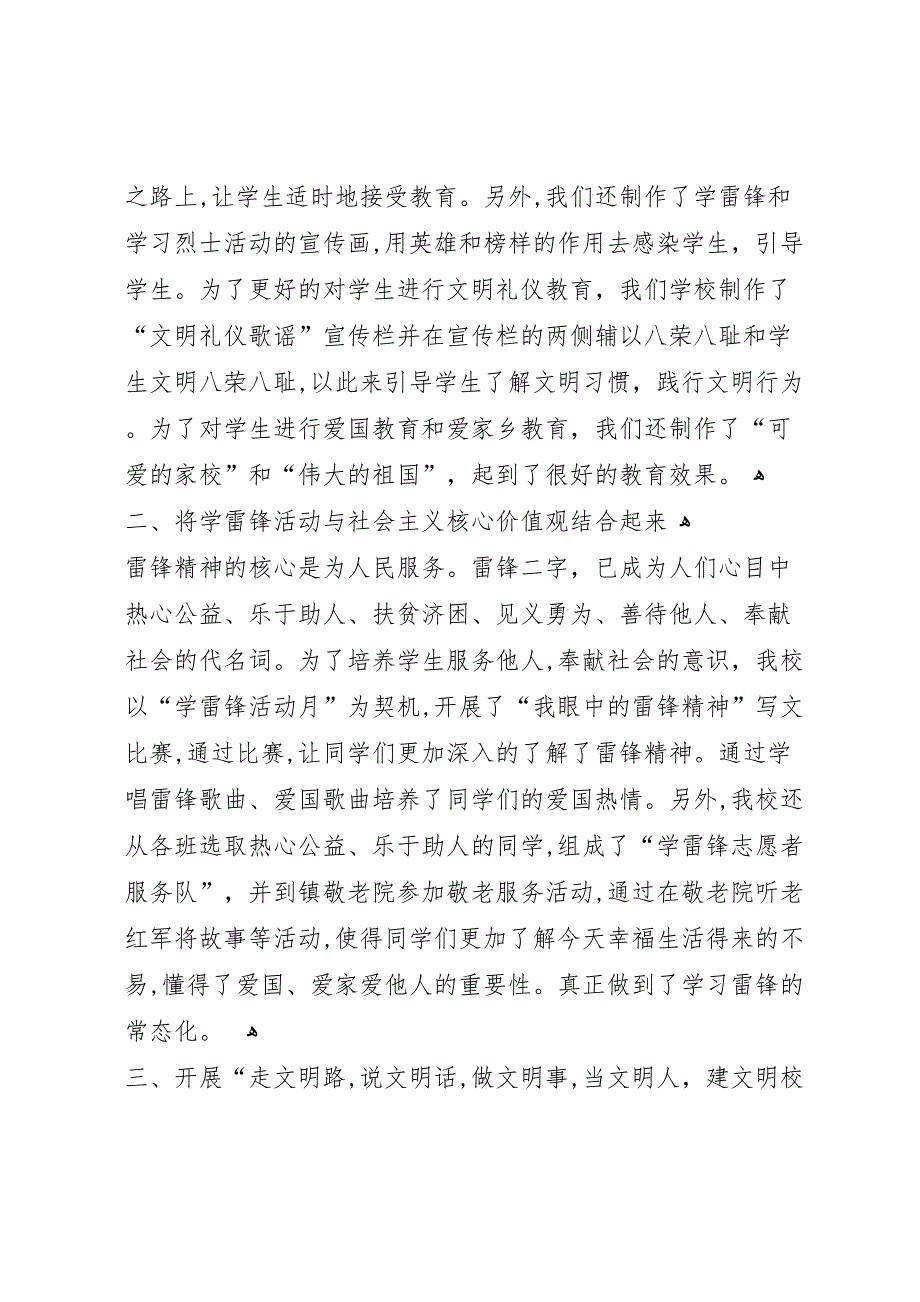 之路上,让学生适时地接受教育。另外,我们还制作了学雷锋和
学习烈士活动的宣传画,用英雄和榜样的作用去感染学生，引导
学生。为了更好的对学生进行文明礼仪教育，我们学校制作了
“文明礼仪歌谣”宣传栏并在宣传栏的两侧辅以八荣八耻和学
生文明八荣八耻,以此来引导学生了解文明习惯，践行文明行为
。为了对学生进行爱国教育和爱家乡教育，我们还制作了“可
爱的家校”和“伟大的祖国”，起到了很好的教育效果。 ﻫ
二、将学雷锋活动与社会主义核心价值观结合起来 ﻫ
雷锋精神的核心是为人民服务。雷锋二字，已成为人们心目中
热心公益、乐于助人、扶贫济困、见义勇为、善待他人、奉献
社会的代名词。为了培养学生服务他人,奉献社会的意识，我校
以“学雷锋活动月”为契机,开展了“我眼中的雷锋精神”写文
比赛,通过比赛,让同学们更加深入的了解了雷锋精神。通过学
唱雷锋歌曲、爱国歌曲培养了同学们的爱国热情。另外,我校还
从各班选取热心公益、乐于助人的同学,组成了“学雷锋志愿者
服务队”，并到镇敬老院参加敬老服务活动,通过在敬老院听老
红军将故事等活动,使得同学们更加了解今天幸福生活得来的不
易,懂得了爱国、爱家爱他人的重要性。真正做到了学习雷锋的
常态化。 ﻫ
三、开展“走文明路,说文明话,做文明事,当文明人，建文明校